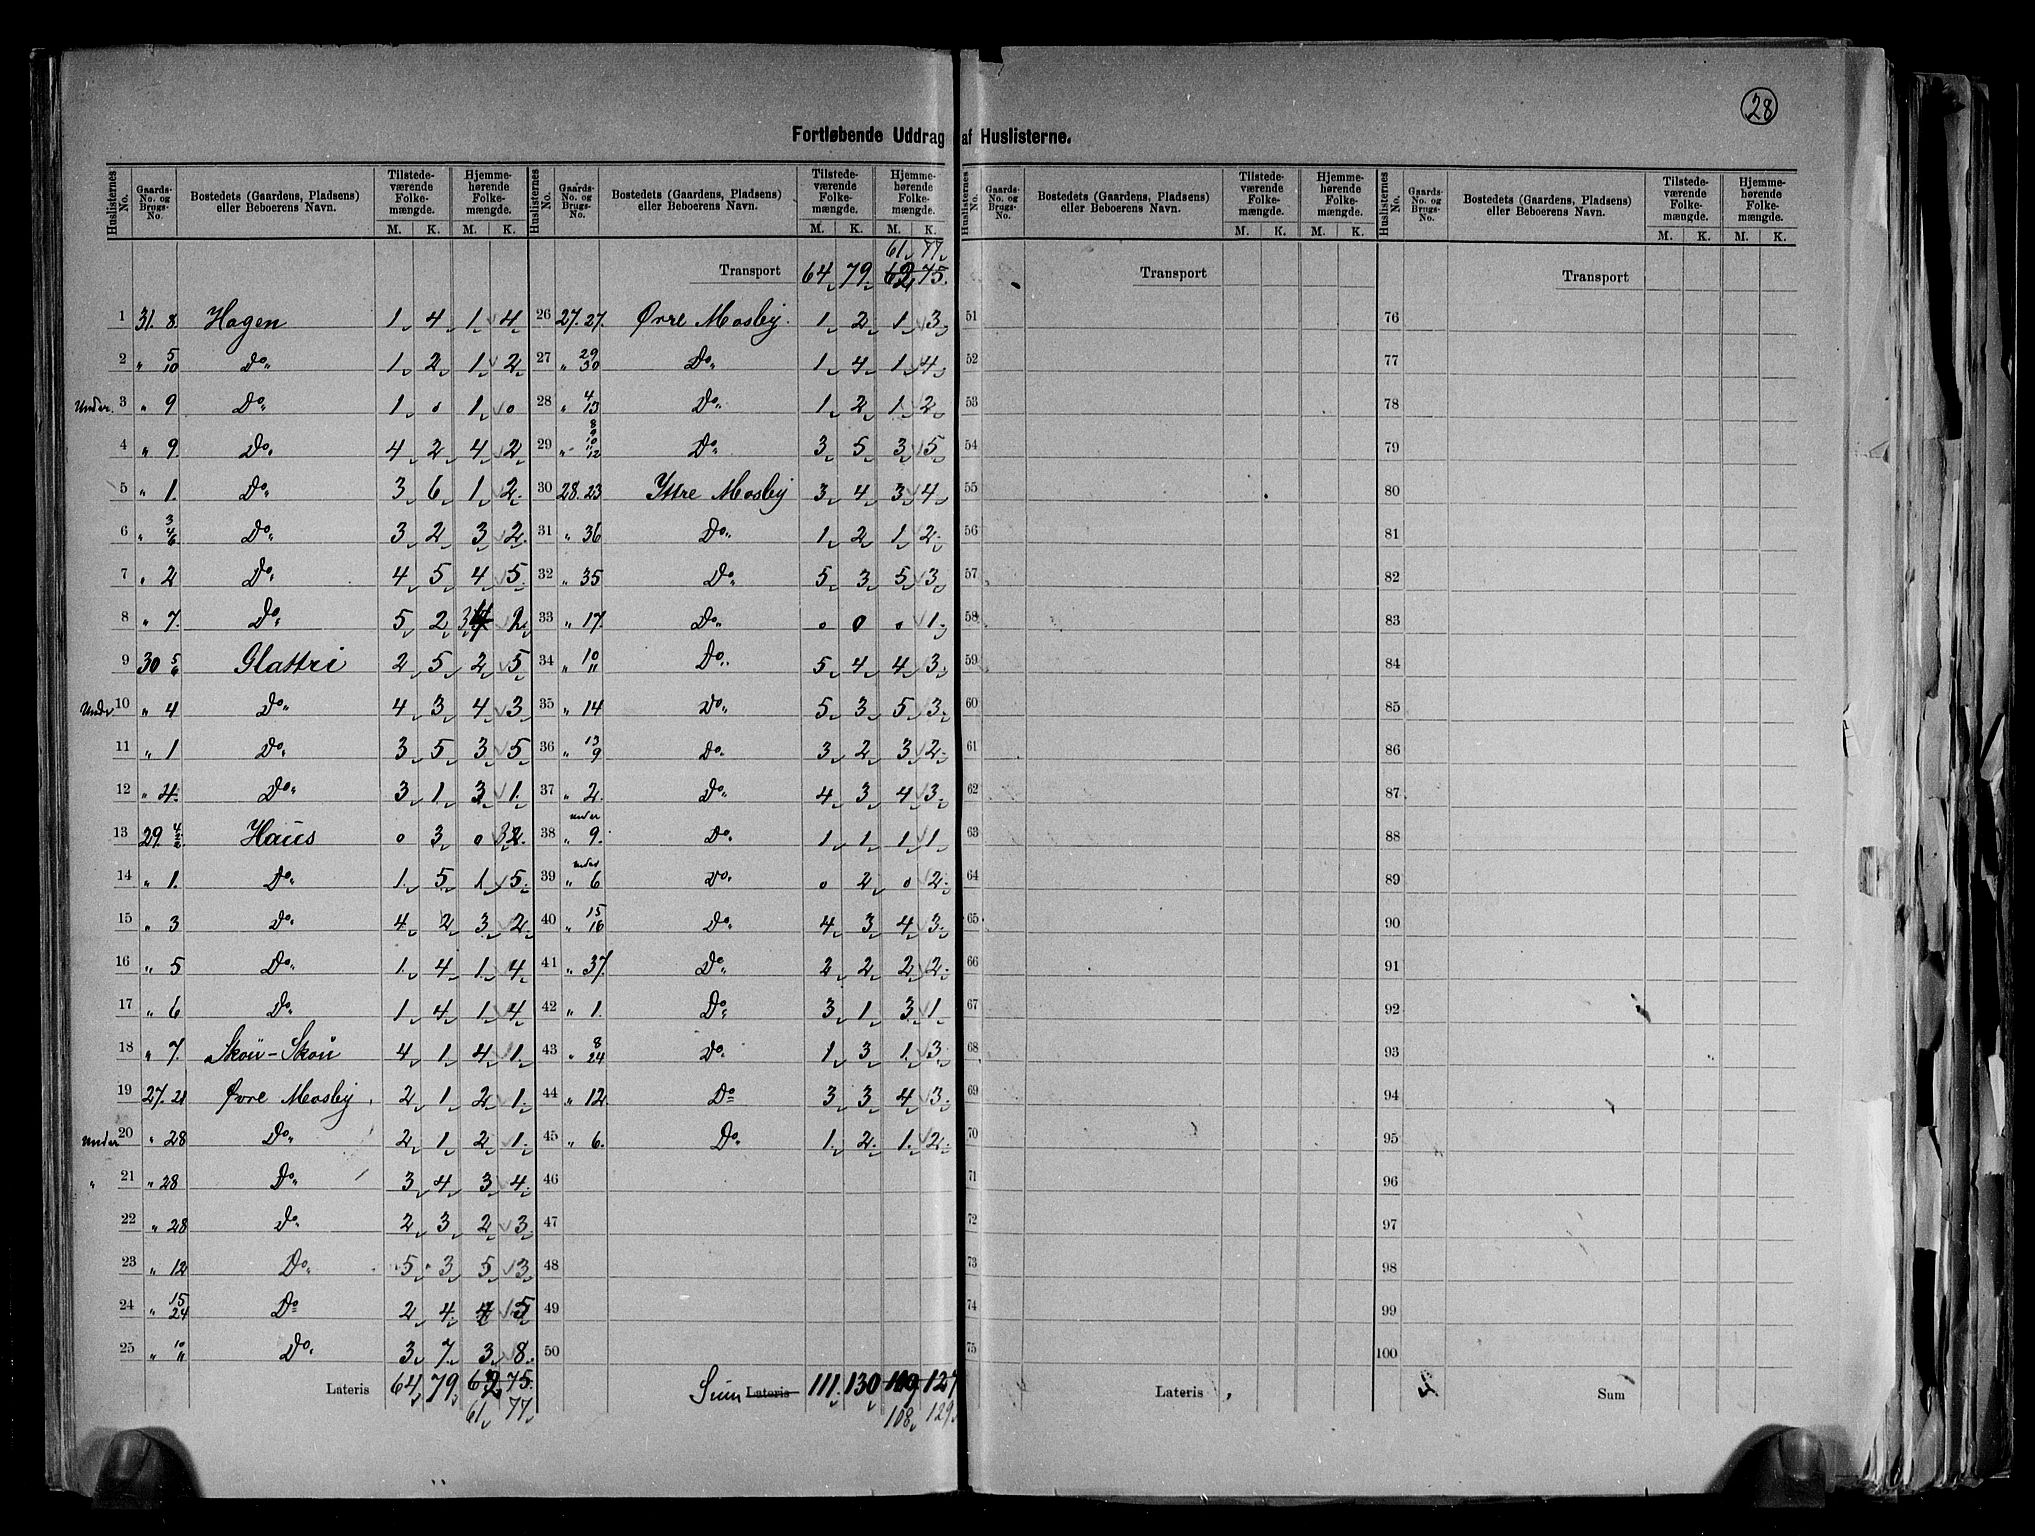 28
Fortløbende Uddrag af Huslisterne.
Huslisternes No. | Gaards-No. og Brugs-No. | Bostedets (Gaardens, Pladsens) eller Beboerens Navn. | Tilstedeværende Folkemængde. M. K. | Hjemmehørende Folkemængde. M. K.
1 31. 8. Hagen 1 4 1 4
2 " 5 10 Do 1 2 1 2
Under. 3 " 9 Do 1 0 1 0
4 " 9. Do 4 2 4 2
5 " 1. Do 3 6 1 2
6 " 3 4 6 Do 3 2 3 2
7 " 2 Do 4 5 4 5
8 " 7. Do 5 2 3 2
9 30 5 6 Glattri 2 5 2 5
Under 10 " 4 Do 4 3 4 3
11 " 1 Do 3 5 3 5
12 " 4. Do 3 1 3 1
13 29. 4 2 Haus 0 3 0 3 2
14 " 1. Do 1 5 1 5
15 " 3 Do 4 2 3 2
16 " 5 Do 1 4 1 4
17 " 6 Do 1 4 1 4
18 " 7. Skou-Skou 4 1 4 1
19 27. 21 Øvre Mosby 2 1 2 1
Under 20 " 28 Do 2 1 2 1
" 21 " 28 Do 3 4 3 4
22 " 28 Do 2 3 2 3
23 " 12 Do 5 3 5 3
24 " 15 24 Do 2 4 4 5
25 " 10 11 Do 3 7 3 8
Lateris 64 79 62 75
61 77
61 77
Transport 64 79 62 75
26 27. 27. Øvre Mosby. 1 2 1 3
27 " 29 30 Do 1 4 1 4
28 " 4 13 Do 1 2 1 2
29 " 8 9 10 11 12 Do 3 5 3 5
30 28. 23 Yttre Mosby 3 4 3 4
31 " 36 Do 1 2 1 2
32 " 35 Do 5 3 5 3
33 " 17. Do 0 0 0 1
34 " 10 11 Do 5 4 4 3
35 " 14 Do 5 3 5 3
36 " 13 9 Do 3 2 3 2
37 " 2. Do 4 3 4 3
38 " under 9. Do 1 1 1 1
39 " under 6 Do 0 2 0 2
40 " 15 16 Do 4 3 4 3
41 " 37. Do 2 2 2 2
42 " 1. Do 3 1 3 1
43 " 8 24 Do 1 3 1 3
44 " 12. Do 3 3 4 3
45 " 6. Do 1 2 1 2
46
47
48
49
50
Sum Lateris 111 130 109 127
108 129
Huslisternes No. | Gaards-No. og Brugs-No. | Bostedets (Gaardens, Pladsens) eller Beboerens Navn. | Tilstedeværende Folkemængde. M. K. | Hjemmehørende Folkemængde. M. K.
Transport
51
52
53
54
55
56
57
58
59
60
61
62
63
64
65
66
67
68
69
70
71
72
73
74
75
Lateris
Transport
76
77
78
79
80
81
82
83
84
85
86
87
88
89
90
91
92
93
94
95
96
97
98
99
100
Sum